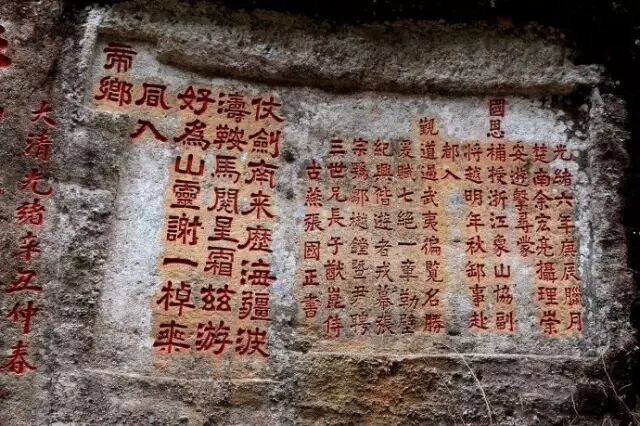 光緒六年庚辰臘月
楚南余宏亮攝理崇
安遊擊尋蒙
國恩補授浙江象山協副
將越明年秋卸事赴
都入
覲道過武夷徧覽名勝
爰賦七絕一章勒壁
紀興偕遊者戎幕張
宗鄒樾鐘暨尹聘
三世兄長子猷崑侍
古燕張國正書
仗劍南來歷海疆波
濤鞍馬閱星霜茲游
好為山靈謝一棹乘
風入
帝鄉
大清光緒辛丑仲春